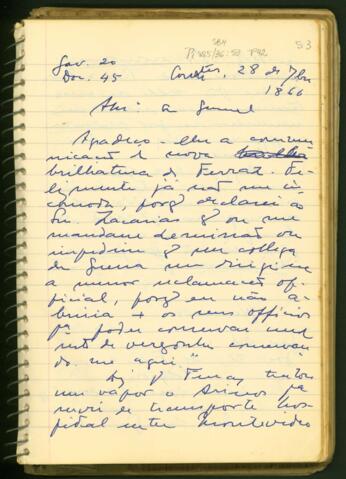 53
Gav. 20
Doc. 45
Corrientes, 28 de 7bro
1866
Am: e General
Agradeço-lhe a commu
nicação d nova
brilhatura do Ferraz. Fe
lizmente já não me in
commoda, porq declarei ao
Sr. Zacarias q ou me
mandam demissão ou
impedem q meu collega
da Guerra me dirigisse
a menor reclamação of
ficial, porq eu não a
briria + os seus officios
pa poder conservar um
resto de vergonha conservan
do-me aqui."
Diz q Ferraz
um vapor o Arinos pa
servir de transporte hos
pital entre Montevideo